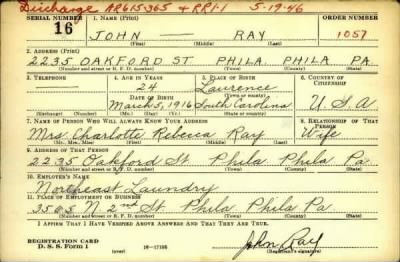 Discharge AR615-365 & RR1-1 5-19-46
SERIAL NUMBER 1. NAME (Print) ORDER NUMBER
16 JOHN — RAY 1057
(First) (Middle) (Last)
2. ADDRESS (Print)
2235 OAKFORD ST. PHILA. PHILA PA.
(Number and street or R. F. D. number) (Town) (County) (State)
3. TELEPHONE 4. AGE IN YEARS 5. PLACE OF BIRTH 6. COUNTRY OF CITIZENSHIP
— 24 Laurence
DATE OF BIRTH (Town or county)
March 5, 1916 South Carolina U.S.A
(Exchange) (Number) (Mo.) (Day) (Yr.) (State or country)
7. NAME OF PERSON WHO WILL ALWAYS KNOW YOUR ADDRESS 8. RELATIONSHIP OF THAT PERSON
Mrs. Charlotte Rebecca Ray Wife
(Mr., Mrs., Miss) (First) (Middle) (Last)
9. ADDRESS OF THAT PERSON
2235 Oakford St Phila Phila Pa.
(Number and street or R. F. D. number) (Town) (County) (State)
10. EMPLOYER'S NAME
Northeast Laundry
11. PLACE OF EMPLOYMENT OR BUSINESS
3503 N. 2nd St. Phila Phila Pa
(Number and street or R. F. D. number) (Town) (County) (State)
I AFFIRM THAT I HAVE VERIFIED ABOVE ANSWERS AND THAT THEY ARE TRUE.
REGISTRATION CARD
D. S. S. Form 1 (over) 16—17105 John Ray
(Registrant's signature)